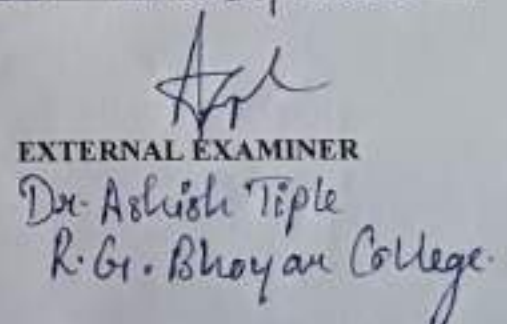 EXTERNAL EXAMINER
Dr. Ashish Tiple
R.G. Bhoyar College.